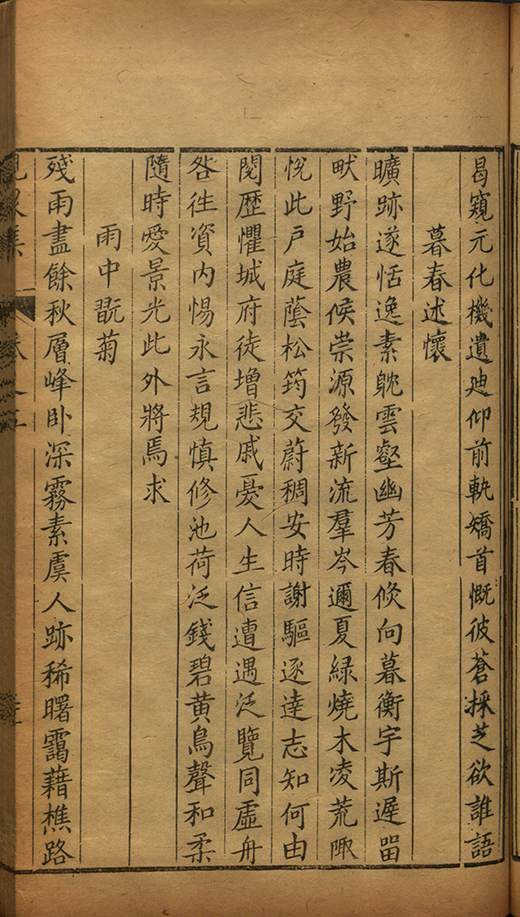 曷窺元化機遺迹仰前軌矯首慨彼蒼採芝欲誰語
暮春述懷
曠跡遂恬逸素躭雲壑幽芳春倐向暮衡宇斯遅畱
畎野始農候崇源發新流羣岑邇夏緑燒木凌荒陬
悅此戸庭蔭松筠交蔚稠安時謝驅逐達志知何由
閱歴懼城府徒増悲戚憂人生信遭遇泛覽同虛舟
咎往資内惕永言規慎修池荷泛錢碧黄鳥聲和柔
隨時愛景光此外將焉求
雨中翫菊
殘雨盡餘秋層峰卧深霧素虞人跡稀曙靄藉樵路